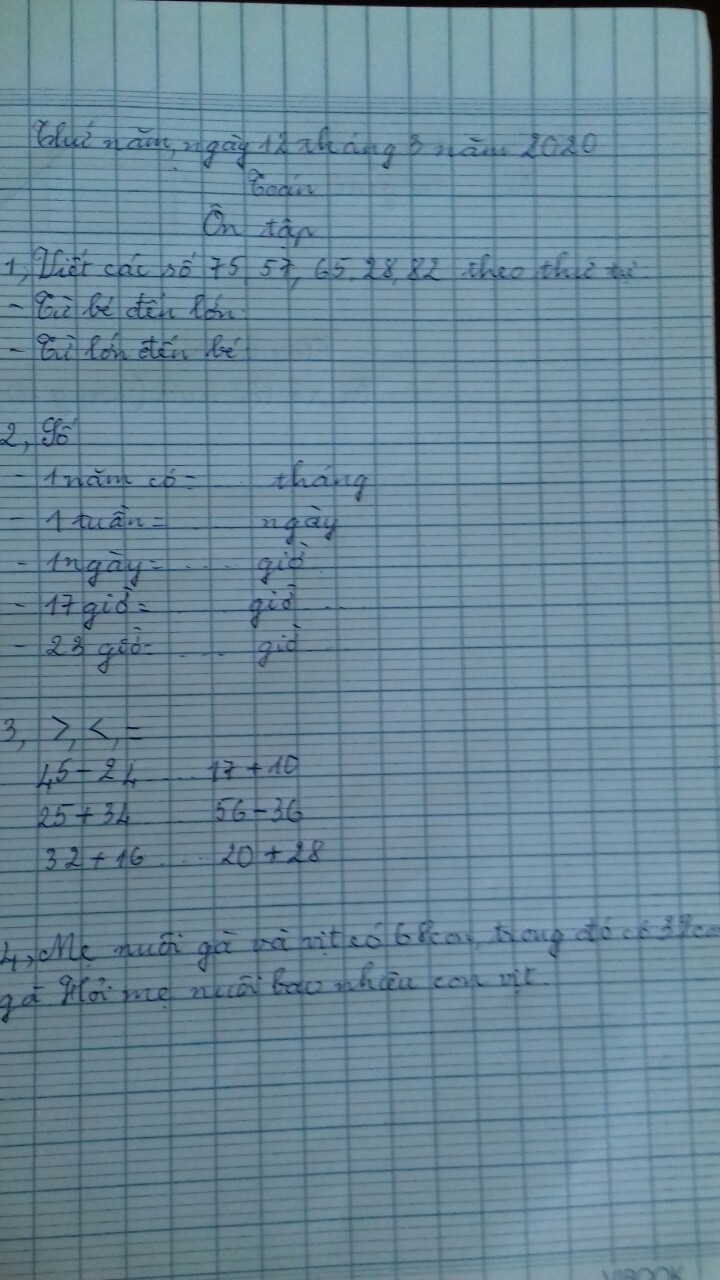 Thứ năm, ngày 12 tháng 3 năm 2020
Toán
Ôn tập
1, Viết các số 75, 57, 65, 28, 82 theo thứ tự
- Từ bé đến lớn
- Từ lớn đến bé
2, Số
- 1 năm có = ..... tháng
- 1 tuần = ..... ngày
- 1 ngày = ..... giờ
- 17 giờ = ..... giờ
- 23 giờ = ..... giờ
3, >, <, =
45 - 24 ..... 17 + 10
25 + 34 ..... 56 - 36
32 + 16 ..... 20 + 28
4, Mẹ nuôi gà và vịt có 68 con, trong đó có con
gà Hỏi mẹ nuôi bao nhiêu con vịt.